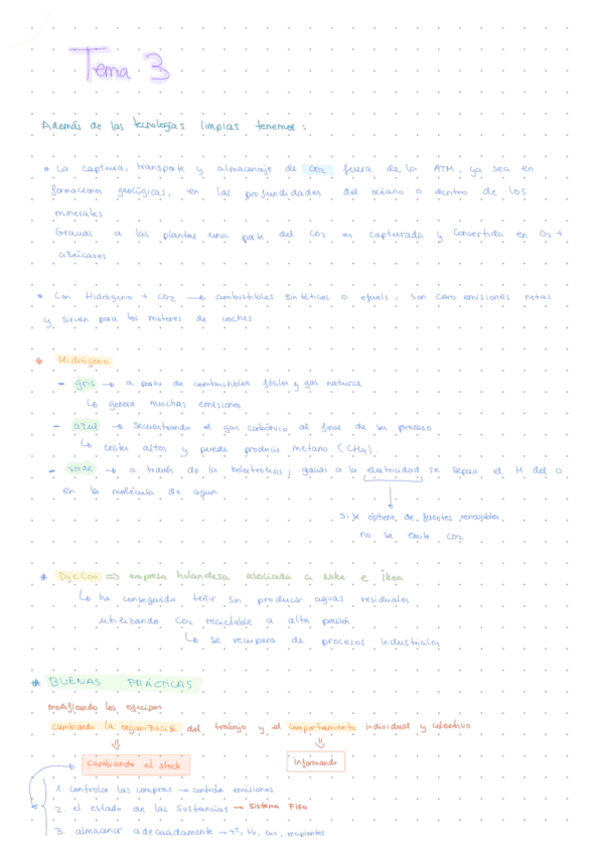 Tema 3
Además de las tecnologías limpias tenemos:
• La captura, transporte y almacenaje de CO2 fuera de la ATM, ya sea en
formaciones geológicas, en las profundidades del océano o dentro de los
minerales
Gracias a las plantas una parte del CO2 es capturada y convertida en O2 +
azúcares
• Con Hidrógeno + CO2 → combustibles sintéticos o efuels, son cero emisiones netas
y sirven para los motores de coches
* Hidrógeno
- gris → a partir de combustibles fósiles y gas natural
↳ genera muchas emisiones
- azul → secuestrando el gas carbónico al final de su proceso
↳ costes altos y puede producir metano (CH4).
- verde → a través de la helectrólisis, gracias a la electricidad se separa el H del O
en la molécula de agua
Si se obtiene de fuentes renovables,
no se emite CO2
* DyeCoo ⇒ empresa holandesa asociada a Nike e Ikea
↳ ha conseguido teñir sin producir aguas residuales
utilizando CO2 reciclable a alta presión
↳ se recupera de procesos industriales
* BUENAS PRÁCTICAS
modificando los equipos
cambiando la organización del trabajo y el comportamiento individual y colectivo
cambiando el stock
Informando
1. controlar las compras → controla emisiones
2. el estado de las sustancias → Sistema Fifo
3. almacenar adecuadamente → Tª, luz, recipientes